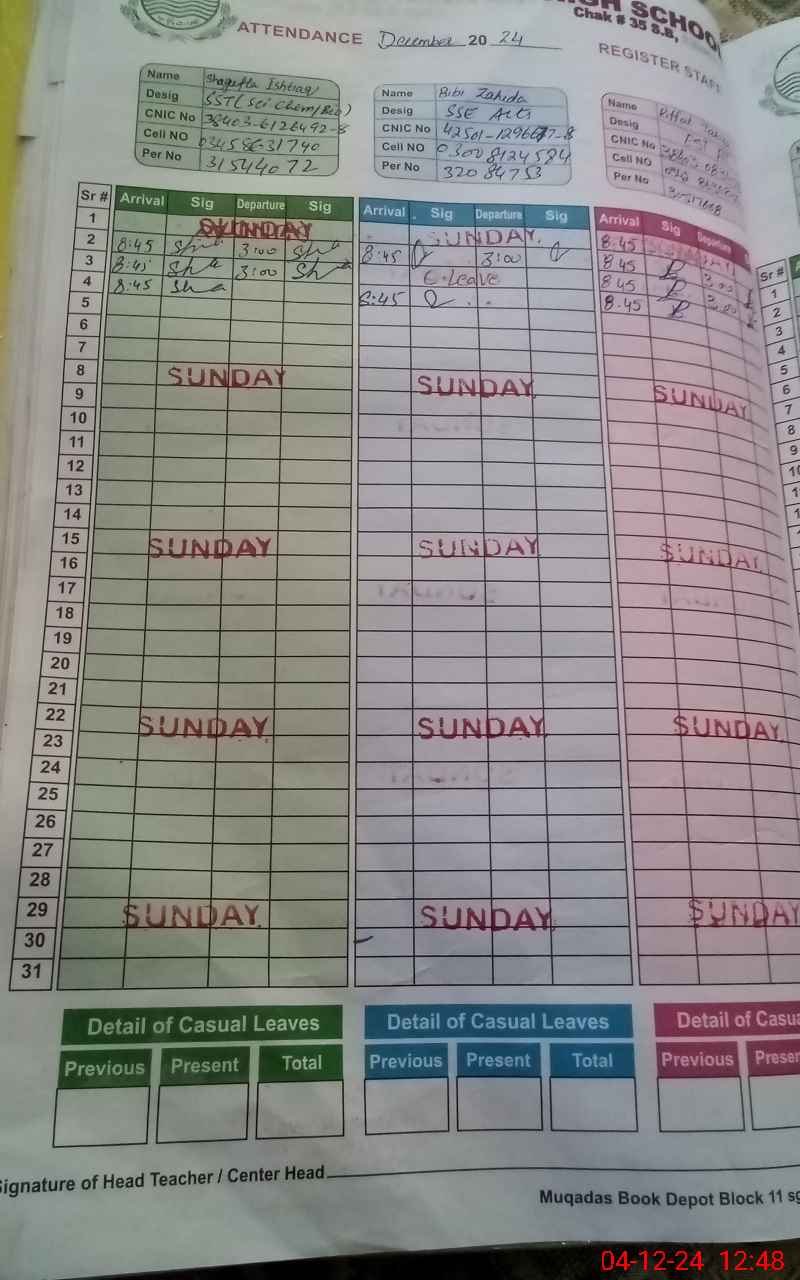 HIGH SCHOOL
Chak # 35 S.B,
ATTENDANCE December 20 24
REGISTER STAFF
Name Shagufta Ishtiaq
Desig SST (Sci Chem/Bio)
CNIC No 38403-6126492-8
Cell NO 03458631740
Per No 31544072
Name Bibi Zahida
Desig SSE Arts
CNIC No 42501-1296677-8
Cell NO 03008124584
Per No 32084753
Name Riffat
Desig
CNIC No
Cell NO
Per No
Sr # Arrival Sig Departure Sig Arrival Sig Departure Sig Arrival Sig Departure
1 SUNDAY SUNDAY
2 8:45 Sha 3:00 Sha 8:45 3:00 8:45
3 8:45 Sha 3:00 Sha C.Leave 8.45 3.00
4 8:45 Sha 8:45 8.45 3.00
5 8.45
6
7
8 SUNDAY SUNDAY SUNDAY
9
10
11
12
13
14
15 SUNDAY SUNDAY SUNDAY
16
17
18
19
20
21
22 SUNDAY SUNDAY SUNDAY
23
24
25
26
27
28
29 SUNDAY SUNDAY SUNDAY
30
31
Sr #
1
2
3
4
5
6
7
8
9
Detail of Casual Leaves Detail of Casual Leaves Detail of Casua
Previous Present Total Previous Present Total Previous Presen
Signature of Head Teacher / Center Head
Muqadas Book Depot Block 11 sg
04-12-24 12:48